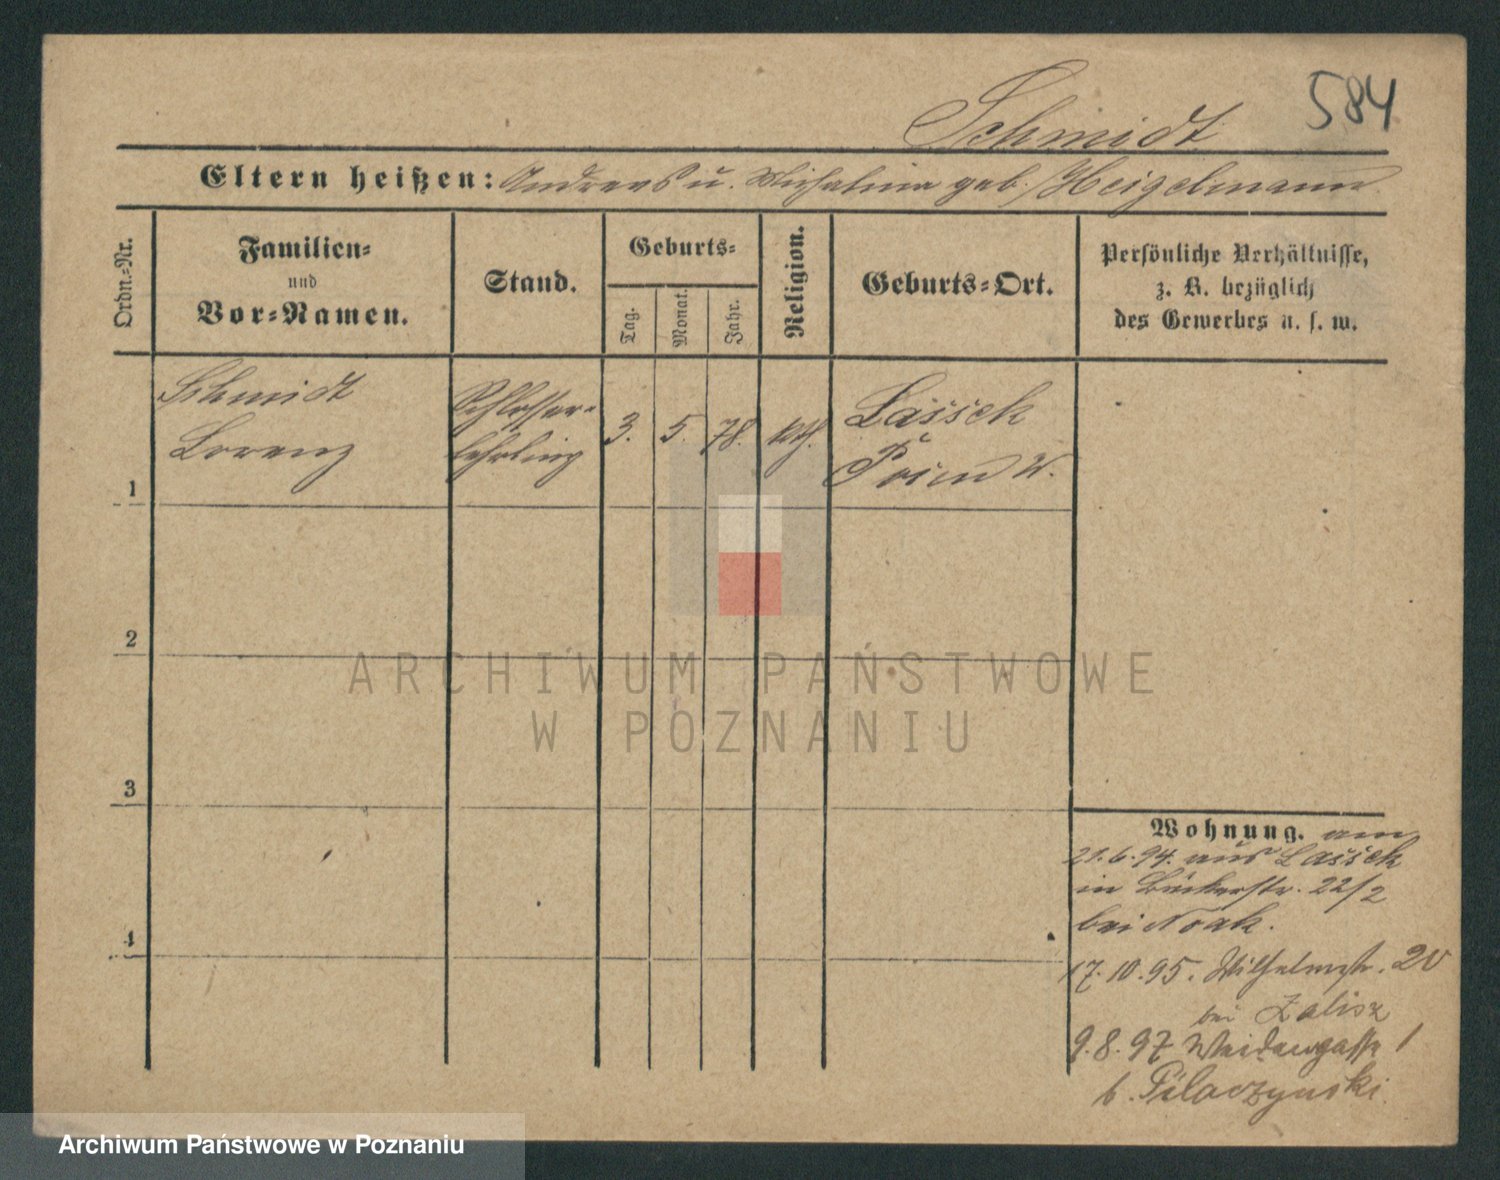 584
Schmidt
Eltern heißen: Andreas u. Michalina geb. Heigelmann
Ordn.-Nr.
Familien-
und
Vor-Namen.
Stand.
Geburts-
Tag.
Monat.
Jahr.
Religion.
Geburts-Ort.
Persönliche Verhältnisse,
z. B. bezüglich
des Gewerbes u. s. w.
Schmidt
Lorenz
Schlosser-
lehrling
3. 5. 78. kth.
Lassek
Posen W.
1
2
3
4
Wohnung. am
21.6.94. aus Lassek
in Bäckerstr. 22/2
bei Noak.
17.10.95. Wilhelmstr. 20
bei Zalisz
9.8.97 Weidengasse 1
b. Pilaczynski
ARCHIWUM PAŃSTWOWE
W POZNANIU
Archiwum Państwowe w Poznaniu